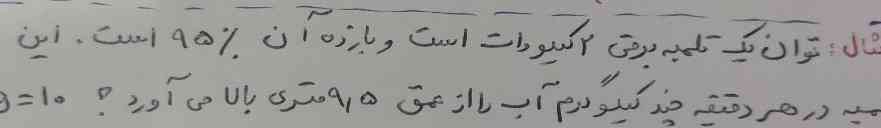 مثال: توان یک تلمبه برقی ۲ کیلووات است و بازده آن ٪۹۵ است. این
تلمبه در هر دقیقه چند کیلوگرم آب را از عمق ۹٫۵ متری بالا می آورد؟ g=۱۰